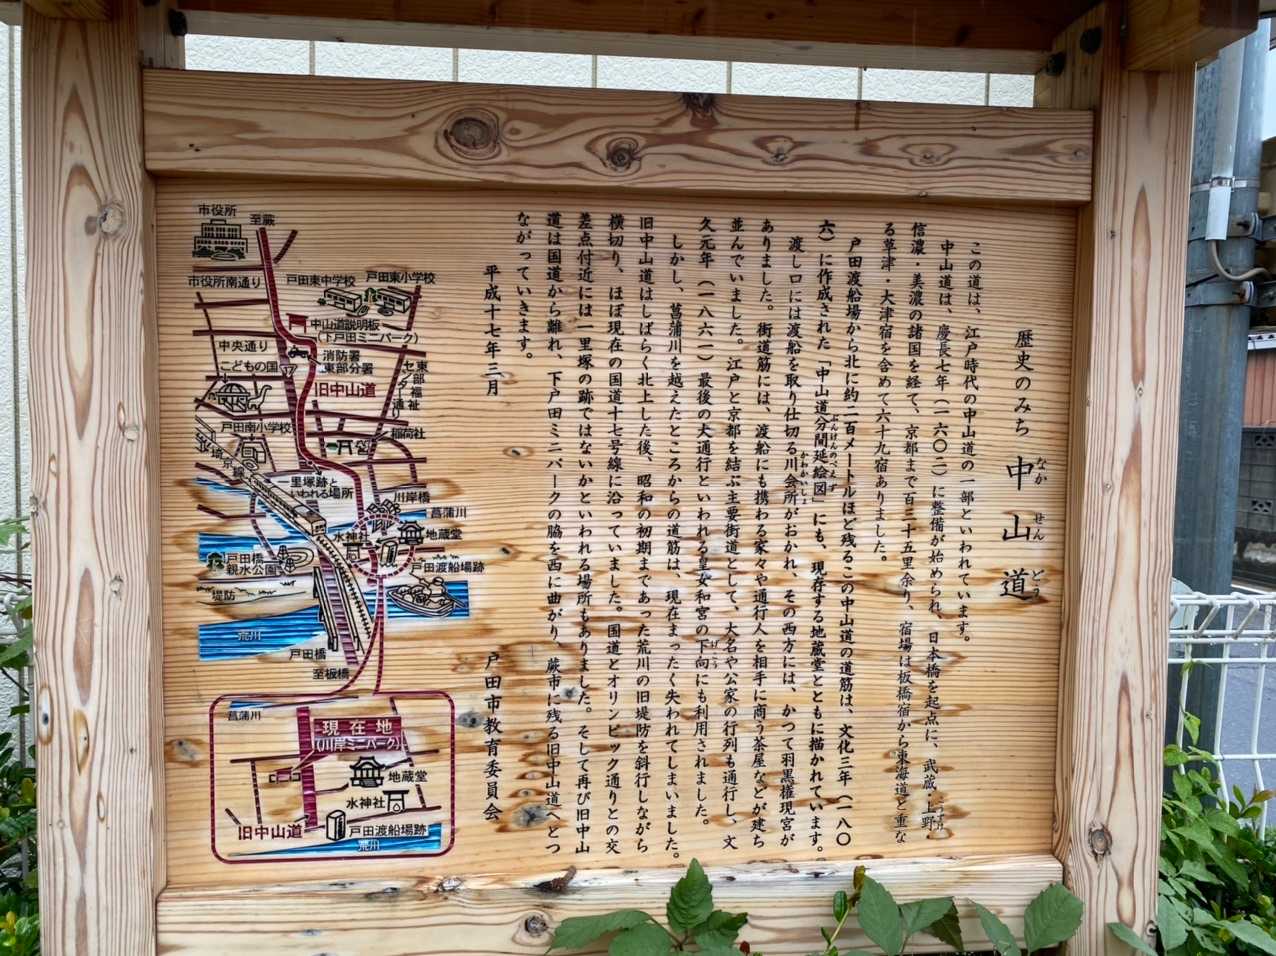 歴史のみち 中山道
なか せん どう
この道は、江戸時代の中山道の一部といわれています。
中山道は、慶長七年(一六〇二)に整備が始められ、日本橋を起点に、武蔵・上野・
信濃・美濃の諸国を経て、京都まで百三十五里余り、宿場は板橋宿から東海道と重な
る草津・大津宿を含めて六十九宿ありました。
戸田渡船場から北に約二百メートルほど残るこの中山道の道筋は、文化三年(一八〇
六)に作成された「中山道分間延絵図」にも、現存する地蔵堂とともに描かれています。
ぶんけんのべえず
渡し口には渡船を取り仕切る川会所がおかれ、その西方には、かつて羽黒権現宮が
かわかいしょ
ありました。街道筋には、渡船にも携わる家々や通行人を相手に商う茶屋などが建ち
並んでいました。江戸と京都を結ぶ主要街道として、大名や公家の行列も通行し、文
久元年(一八六一)最後の大通行といわれる皇女和宮の下向にも利用されました。
しかし、菖蒲川を越えたところからの道筋は、現在まったく失われてしまいました。
旧中山道はしばらく北上した後、昭和の初期まであった荒川の旧堤防を斜行しながら
横切り、ほぼ現在の国道十七号線に沿っていました。国道とオリンピック通りとの交
差点付近には一里塚の跡ではないかといわれる場所もありました。そして再び旧中山
道は国道から離れ、下戸田ミニパークの脇を西に曲がり、蕨市に残る旧中山道へとつ
ながっていきます。
平成十七年三月
戸田市教育委員会
市役所
至蕨
市役所南通り
戸田東中学校
戸田東小学校
中山道説明板
(下戸田ミニパーク)
中央通り
消防署
東部分署
こどもの国
旧中山道
東部福祉
セ
戸田南小学校
稲荷社
埼京線
一里塚跡と
いわれる場所
川岸橋
菖蒲川
水神社
地蔵堂
戸田橋
親水公園
戸田渡船場跡
堤防
荒川
戸田橋
至板橋
菖蒲川
現在地
(川岸ミニパーク)
地蔵堂
水神社
旧中山道
戸田渡船場跡
荒川